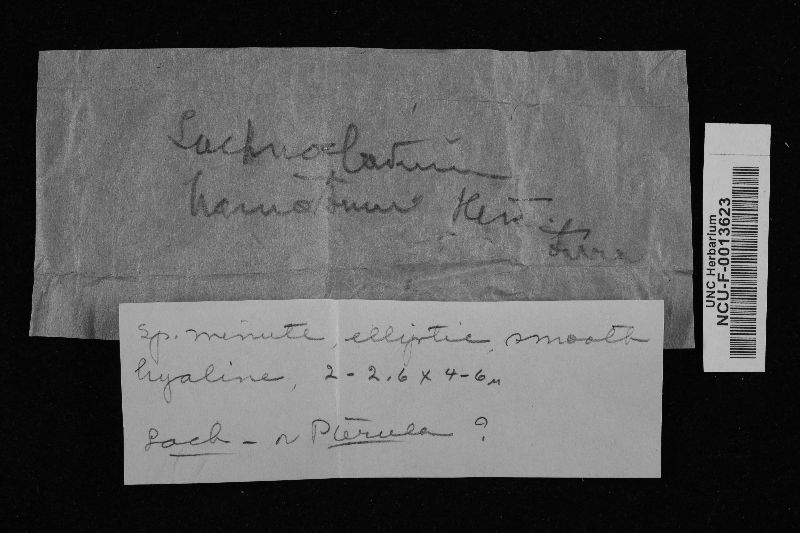 Lachnocladium
hamatum Henn.
Sp. minute, elliptic, smooth
hyaline, 2-2.6 x 4-6µ
Lach - or Pterula ?
UNC Herbarium
NCU-F-0013623